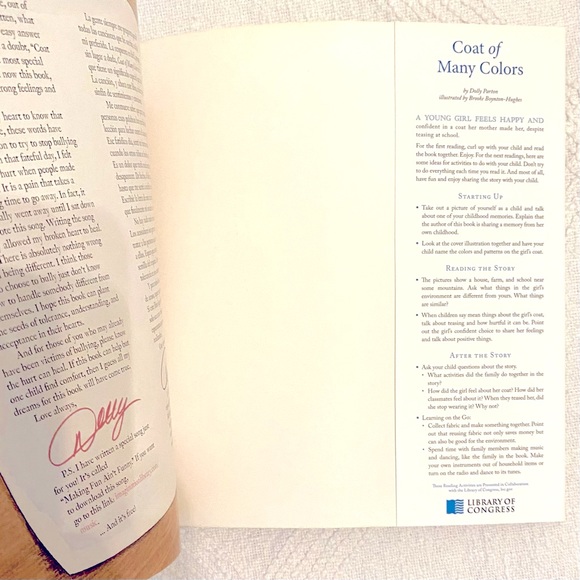 , out of
tten, what
easy answer
a doubt, "Coat
most special
now this book,
trong feelings and
heart to know that
e, these words have
on to try to stop bullying
that fateful day, I felt
hurt when people made
It is a pain that takes a
ng time to go away. In fact, it
ally went away until I sat down
ote this song. Writing the song
allowed my broken heart to heal.
here is absolutely nothing wrong
being different. I think those
o choose to bully just don't know
w to handle somebody different from
emselves. I hope this book can plant
e seeds of tolerance, understanding, and
acceptance in their hearts.
And for those of you who may already
have been victims of bullying, please know
the hurt can heal. If this book can help but
one child find comfort, then I guess all my
dreams for this book will have come true.
Love always,
Dolly
P.S. I have written a special song just
for you! It's called
"Making Fun Ain't Funny." If you want
to download this song
go to this link
— And it's free!
La gente siempre me
todas las canciones que
mi preferida. La respuesta
sin lugar a duda, Coat of
que tiene un significado
La canción, y ahora
Coat of
Many Colors
by Dolly Parton
illustrated by Brooke Boynton-Hughes
A YOUNG GIRL FEELS HAPPY AND
confident in a coat her mother made her, despite
teasing at school.
For the first reading, curl up with your child and read
the book together. Enjoy. For the next readings, here are
some ideas for activities to do with your child. Don't try
to do everything each time you read it. And most of all,
have fun and enjoy sharing the story with your child.
STARTING UP
• Take out a picture of yourself as a child and talk
about one of your childhood memories. Explain that
the author of this book is sharing a memory from her
own childhood.
• Look at the cover illustration together and have your
child name the colors and patterns on the girl's coat.
READING THE STORY
• The pictures show a house, farm, and school near
some mountains. Ask what things in the girl's
environment are different from yours. What things
are similar?
• When children say mean things about the girl's coat,
talk about teasing and how hurtful it can be. Point
out the girl's confident choice to share her feelings
and talk about positive things.
AFTER THE STORY
• Ask your child questions about the story.
• What activities did the family do together in the
story?
• How did the girl feel about her coat? How did her
classmates feel about it? When they teased her, did
she stop wearing it? Why not?
• Learning on the Go:
• Collect fabric and make something together. Point
out that reusing fabric not only saves money but
can also be good for the environment.
• Spend time with family members making music
and dancing, like the family in the book. Make
your own instruments out of household items or
turn on the radio and dance to its tunes.
These Reading Activities are Presented in Collaboration
with the Library of Congress, loc.gov
LIBRARY OF
CONGRESS